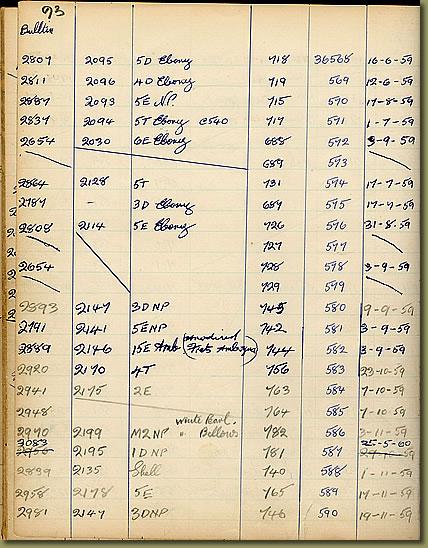 93
Bulletin
2807 2095 5D Ebony 718 36568 16-6-59
2811 2096 4D Ebony 719 569 12-6-59
2887 2093 5E N.P. 715 570 17-8-59
2837 2094 5T Ebony C540 717 571 1-7-59
2654 2030 6E Ebony 688 572 3-9-59
689 573
2864 2128 5T 731 574 17-7-59
2787 - 3D Ebony 689 575 17-7-59
2808 2114 5E Ebony 726 576 31-8-59
727 577
2654 728 578 3-9-59
729 579
2893 2147 3DNP 745 580 9-9-59
2791 2141 5ENP 742 581 3-9-59
2889 2146 15E 744 582 3-9-59
2920 2170 4T 756 583 23-10-59
2941 2175 2E 763 584 7-10-59
2948 764 585 7-10-59
White Pearl
2970 2199 M2NP " Bellows 782 586 3-11-59
3083 25-5-60
2195 1DNP 781 587
2839 2135 Shell 740 588 1-11-59
2958 2178 5E 765 589 17-11-59
2981 2147 3DNP 746 590 19-11-59